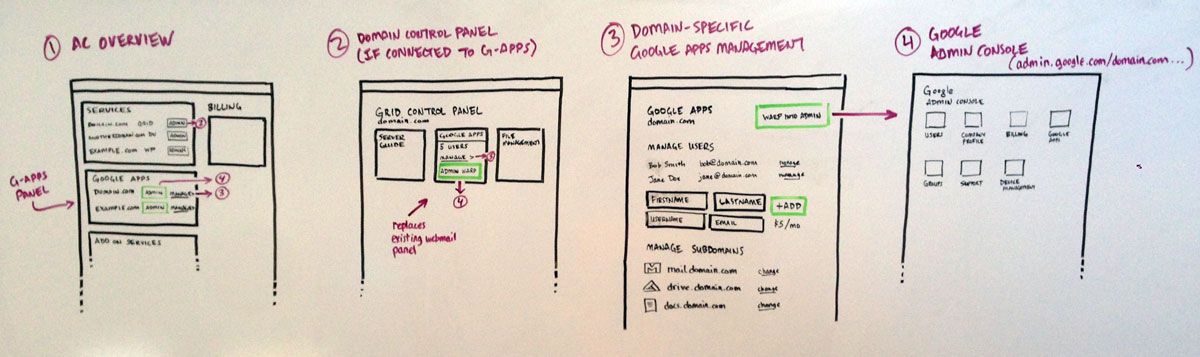 1 AC OVERVIEW
SERVICES
DOMAIN.COM GRID ADMIN → 2
ANOTHERDOMAIN.COM DV ADMIN
EXAMPLE.COM WP ADMIN
BILLING
G-APPS
PANEL
GOOGLE APPS
4
DOMAIN.COM ADMIN MANAGE → 3
EXAMPLE.COM ADMIN MANAGE
ADD ON SERVICES
2 DOMAIN CONTROL PANEL
(IF CONNECTED TO G-APPS)
GRID CONTROL PANEL
domain.com
SERVER
GUIDE
GOOGLE APPS
5 USERS
MANAGE > → 3
ADMIN WARP
4
FILE
MANAGEMENT
replaces
existing webmail
panel
3 DOMAIN-SPECIFIC
GOOGLE APPS MANAGEMENT
GOOGLE APPS
domain.com
WARP INTO ADMIN
MANAGE USERS
Bob Smith bob@domain.com manage
Jane Doe jane@domain.com manage
FIRSTNAME LASTNAME +ADD
USERNAME EMAIL $5/mo
MANAGE SUBDOMAINS
mail.domain.com change
drive.domain.com change
docs.domain.com change
4 GOOGLE
ADMIN CONSOLE
(admin.google.com/domain.com...)
Google
ADMIN CONSOLE
USERS
COMPANY
PROFILE
BILLING
GOOGLE
APPS
GROUPS
SUPPORT
DEVICE
MANAGEMENT